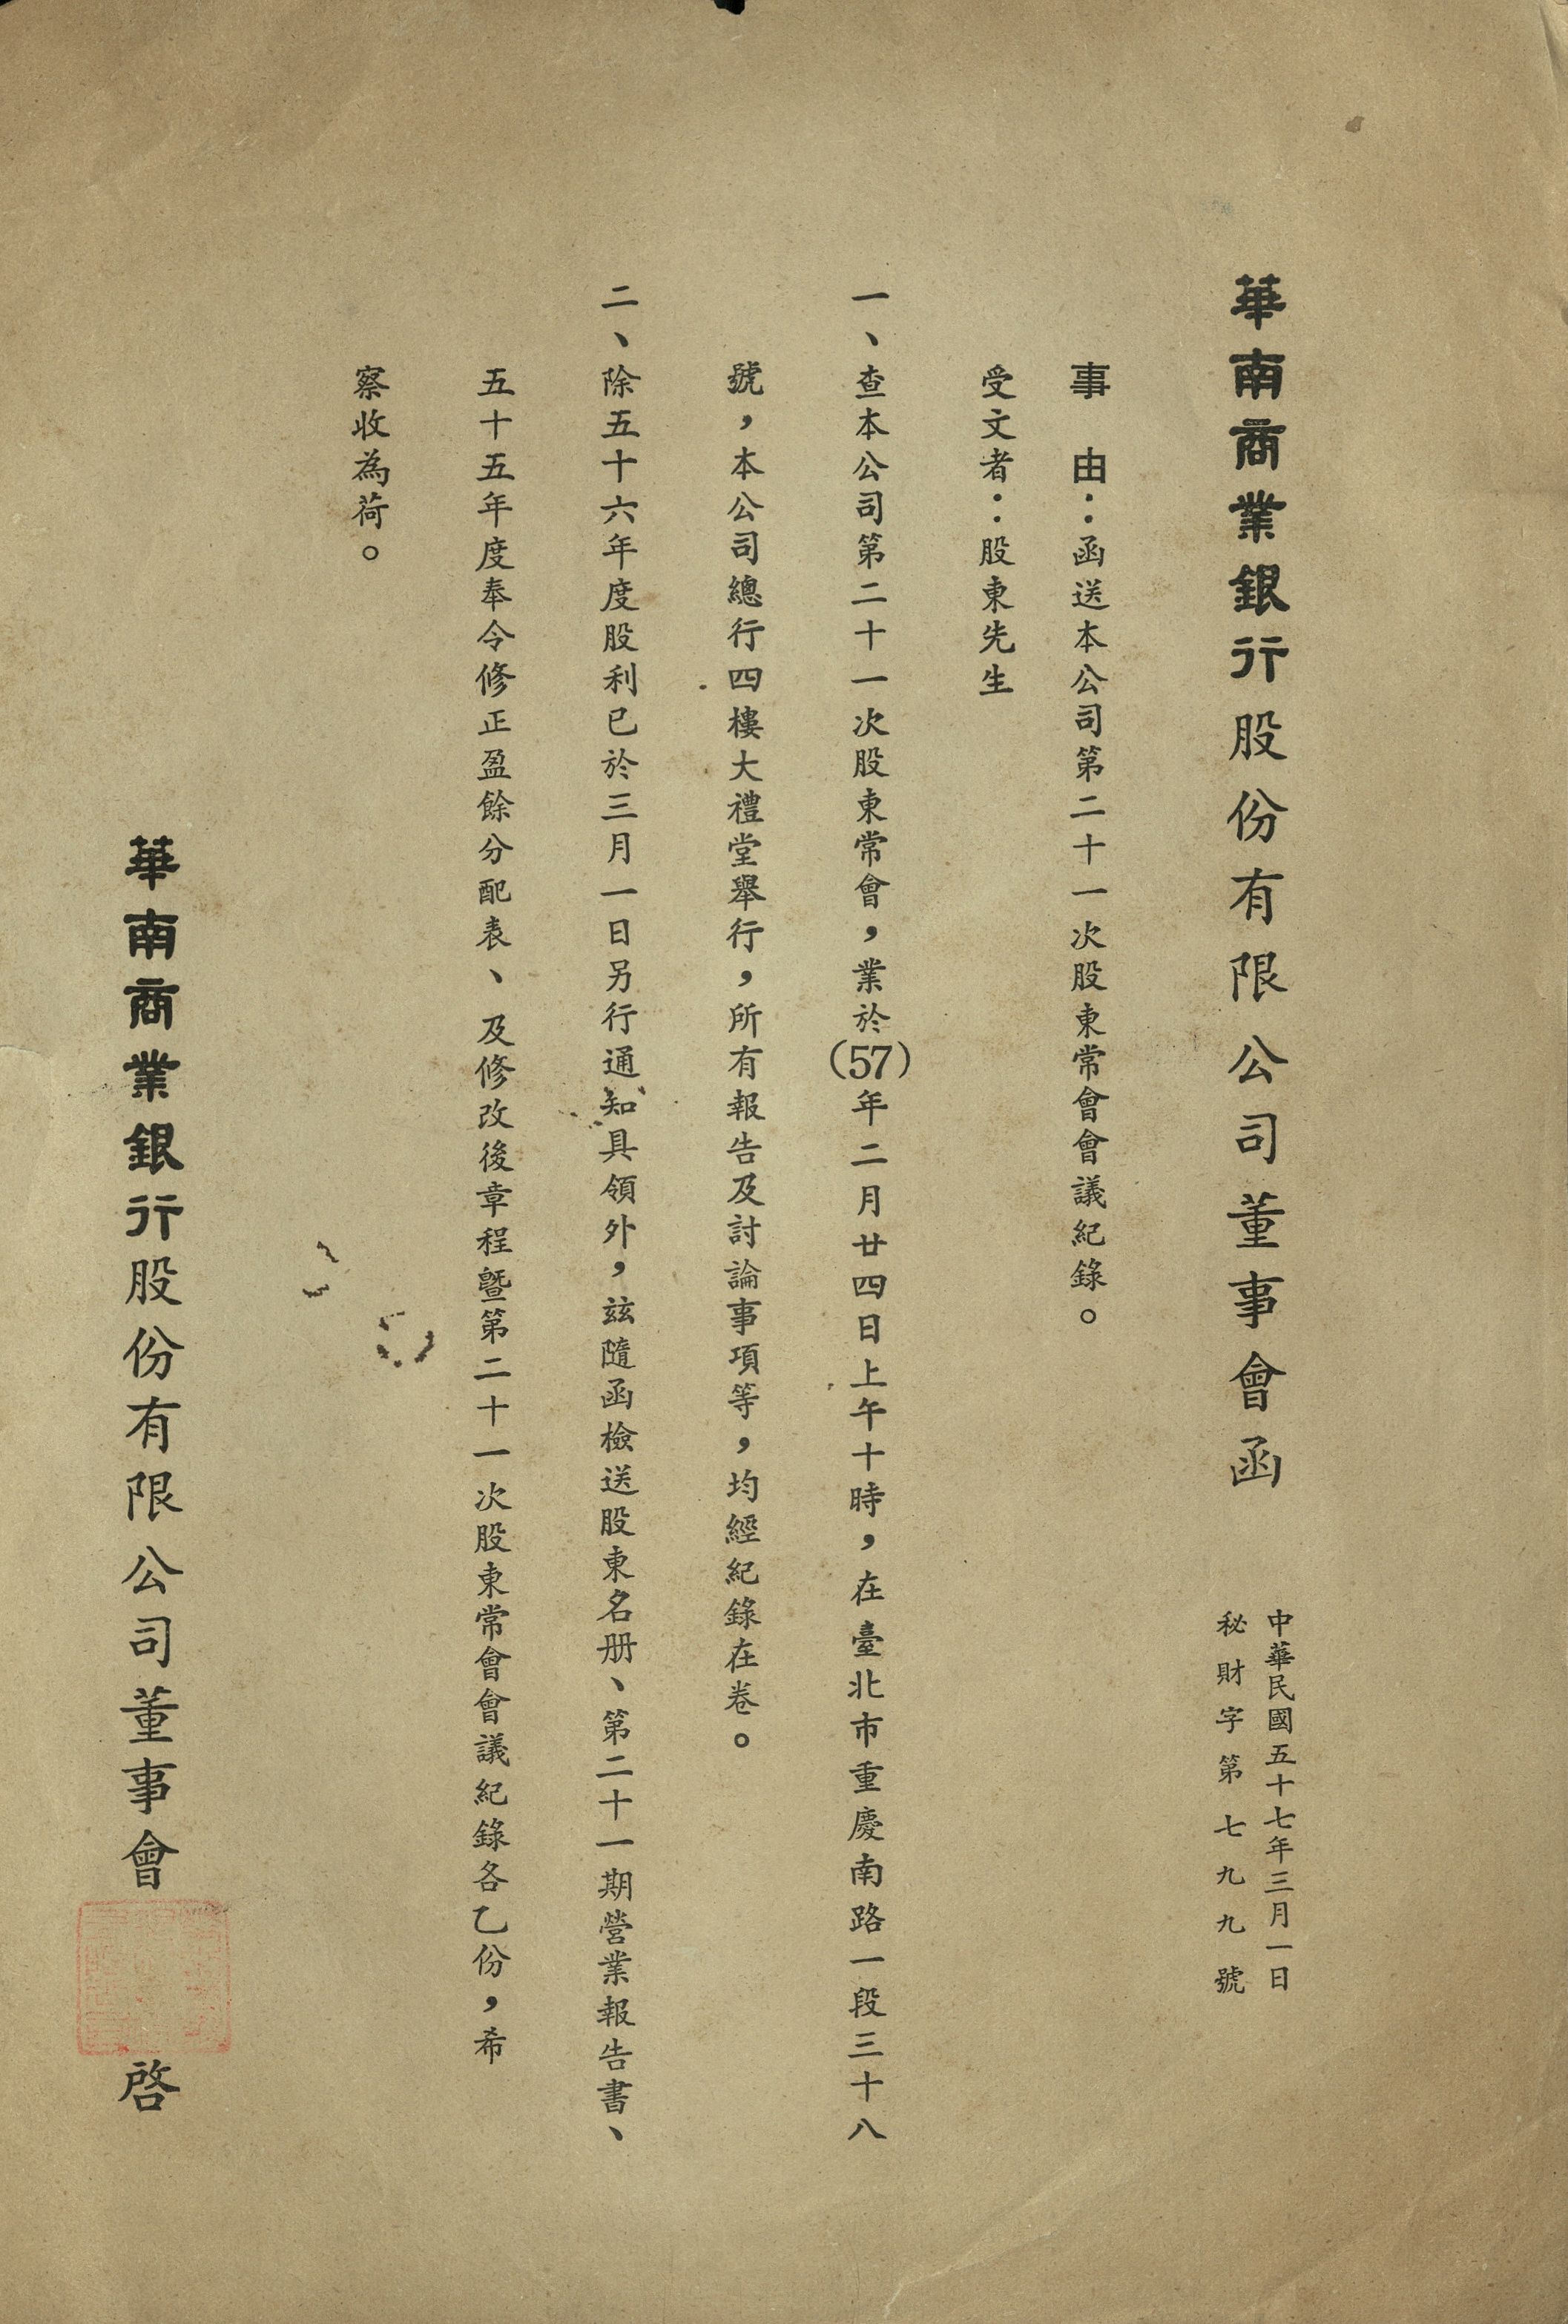 華南商業銀行股份有限公司董事會函
中華民國五十七年三月一日
秘財字第七九九號
事　由：函送本公司第二十一次股東常會會議紀錄。
受文者：股東先生
一、查本公司第二十一次股東常會，業於(57)年二月廿四日上午十時，在臺北市重慶南路一段三十八
號，本公司總行四樓大禮堂舉行，所有報告及討論事項等，均經紀錄在卷。
二、除五十六年度股利已於三月一日另行通知具領外，茲隨函檢送股東名册、第二十一期營業報告書、
五十五年度奉令修正盈餘分配表、及修改後章程暨第二十一次股東常會會議紀錄各乙份，希
察收為荷。
華南商業銀行股份有限公司董事會　啓